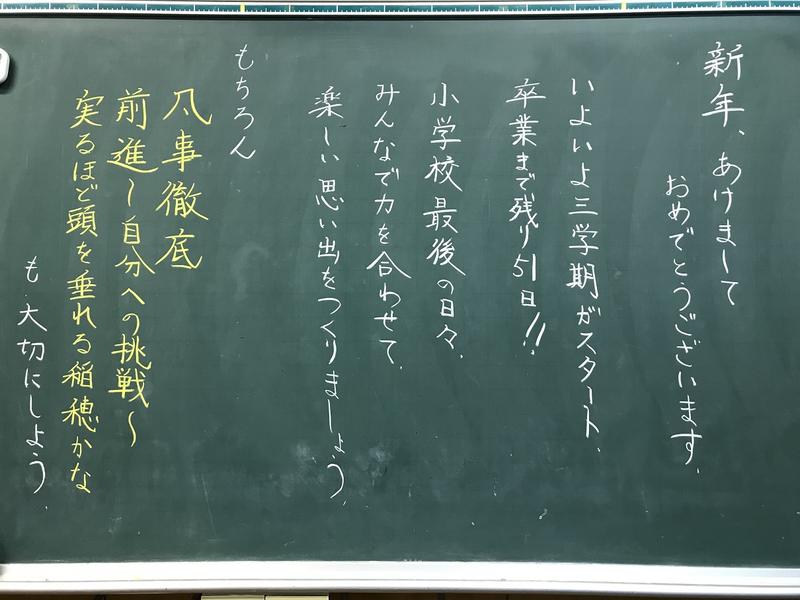 新年、あけまして
おめでとうございます。
いよいよ三学期がスタート。
卒業まで残り51日!!
小学校最後の日々。
みんなで力を合わせて
楽しい思い出をつくりましょう。
もちろん
凡事徹底
前進〜自分への挑戦〜
実るほど頭を垂れる稲穂かな
も大切にしよう。